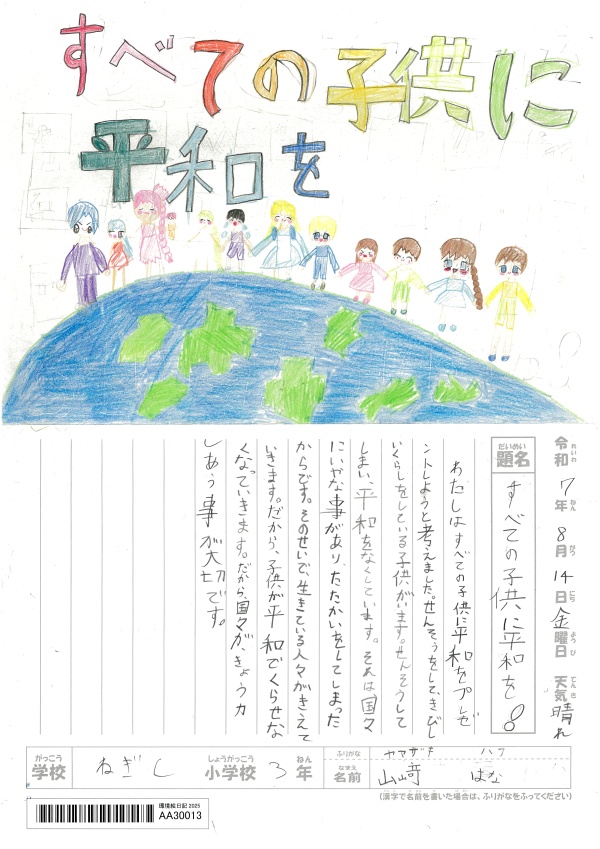 すべての子供に
平和を
令和7年8月14日金曜日 天気晴れ
題名 すべての子供に平和を
わたしはすべての子供に平和をプレゼ
ントしようと考えました。せんそうをして、きびし
いくらしをしている子供がいます。せんそうして
しまい、平和をなくしています。それは国々
にいやな事があり、たたかいをしてしまった
からです。そのせいで、生きている人々がきえて
いきます。だから、子供が平和でくらせな
くなっていきます。だから、国々が、きょう力
しあう事が大切です。
がっこう しょうがっこう ねん ふりがな ヤマザキ ハナ
学校 ねぎし 小学校 3年 名前 山﨑 はな
(漢字で名前を書いた場合は、ふりがなをふってください)
環境絵日記 2025
AA30013